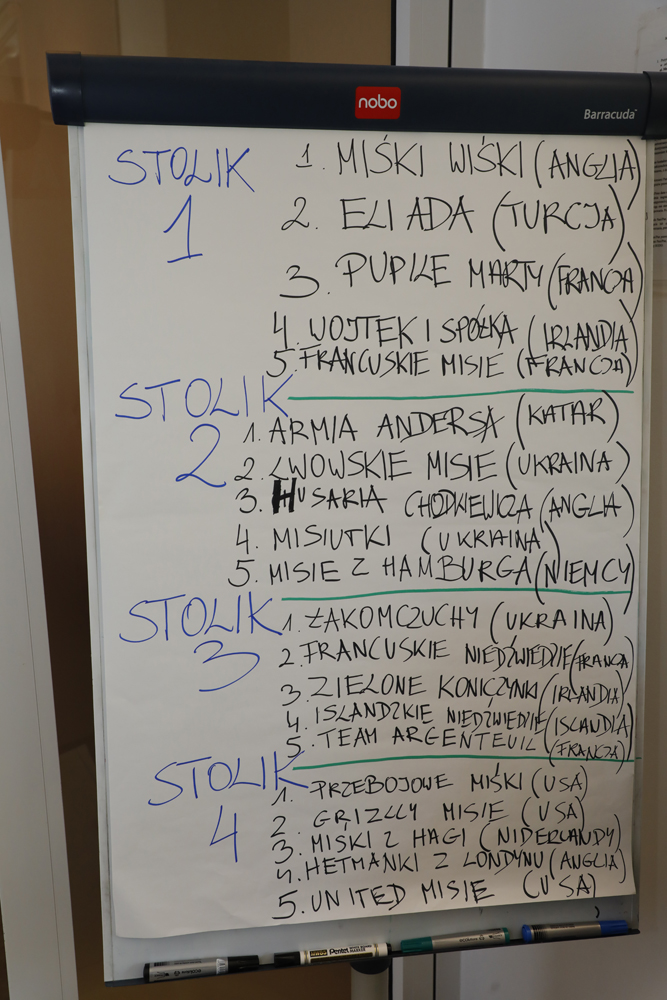 nobo
Barracuda
STOLIK 1
1. MIŚKI WIŚKI (ANGLIA)
2. ELIADA (TURCJA)
3. PUPILE MARTY (FRANCJA)
4. WOJTEK I SPÓŁKA (IRLANDIA)
5. FRANCUSKIE MISIE (FRANCJA)
STOLIK 2
1. ARMIA ANDERSA (KATAR)
2. LWOWSKIE MISIE (UKRAINA)
3. HUSARIA CHODKIEWICZA (ANGLIA)
4. MISIUTKI (UKRAINA)
5. MISIE Z HAMBURGA (NIEMCY)
STOLIK 3
1. ŁAKOMCZUCHY (UKRAINA)
2. FRANCUSKIE NIEDŹWIEDZIE (FRANCJA)
3. ZIELONE KONICZYNKI (IRLANDIA)
4. ISLANDZKIE NIEDŹWIEDZIE (ISLANDIA)
5. TEAM ARGENTEUIL (FRANCJA)
STOLIK 4
1. PRZEBOJOWE MIŚKI (USA)
2. GRIZZLY MISIE (USA)
3. MIŚKI Z HAGI (NIDERLANDY)
4. HETMANKI Z LONDYNU (ANGLIA)
5. UNITED MISIE (USA)
Pentel